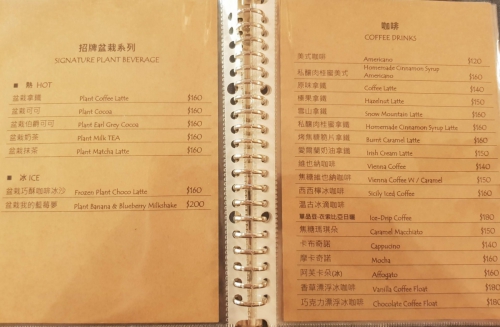 招牌盆栽系列
SIGNATURE PLANT BEVERAGE
■ 熱 HOT
盆栽拿鐵 Plant Coffee Latte $160
盆栽可可 Plant Cocoa $160
盆栽伯爵可可 Plant Earl Grey Cocoa $160
盆栽奶茶 Plant Milk TEA $160
盆栽抹茶 Plant Matcha Latte $160
■ 冰 ICE
盆栽巧酥咖啡冰沙 Frozen Plant Choco Latte $160
盆栽我的藍莓夢 Plant Banana & Blueberry Milkshake $200
咖啡
COFFEE DRINKS
美式咖啡 Americano $120
私釀肉桂蜜美式 Homemade Cinnamon Syrup Americano $160
原味拿鐵 Coffee Latte $140
榛果拿鐵 Hazelnut Latte $150
雪山拿鐵 Snow Mountain Latte $160
私釀肉桂蜜拿鐵 Homemade Cinnamon Syrup Latte $160
烤焦糖脆片拿鐵 Burnt Caramel Latte $160
愛爾蘭奶油拿鐵 Irish Cream Latte $150
維也納咖啡 Vienna Coffee $140
焦糖維也納咖啡 Vienna Coffee W / Caramel $150
西西檸冰咖啡 Sicily Iced Coffee $160
Ice-Drip Coffee $180
焦糖瑪琪朵 Caramel Macchiato $150
卡布奇諾 Cappuccino $140
摩卡奇諾 Mocha $160
阿芙卡朵(冰) Affogato $160
香草漂浮冰咖啡 Vanilla Coffee Float $180
巧克力漂浮冰咖啡 Chocolate Coffee Float $180